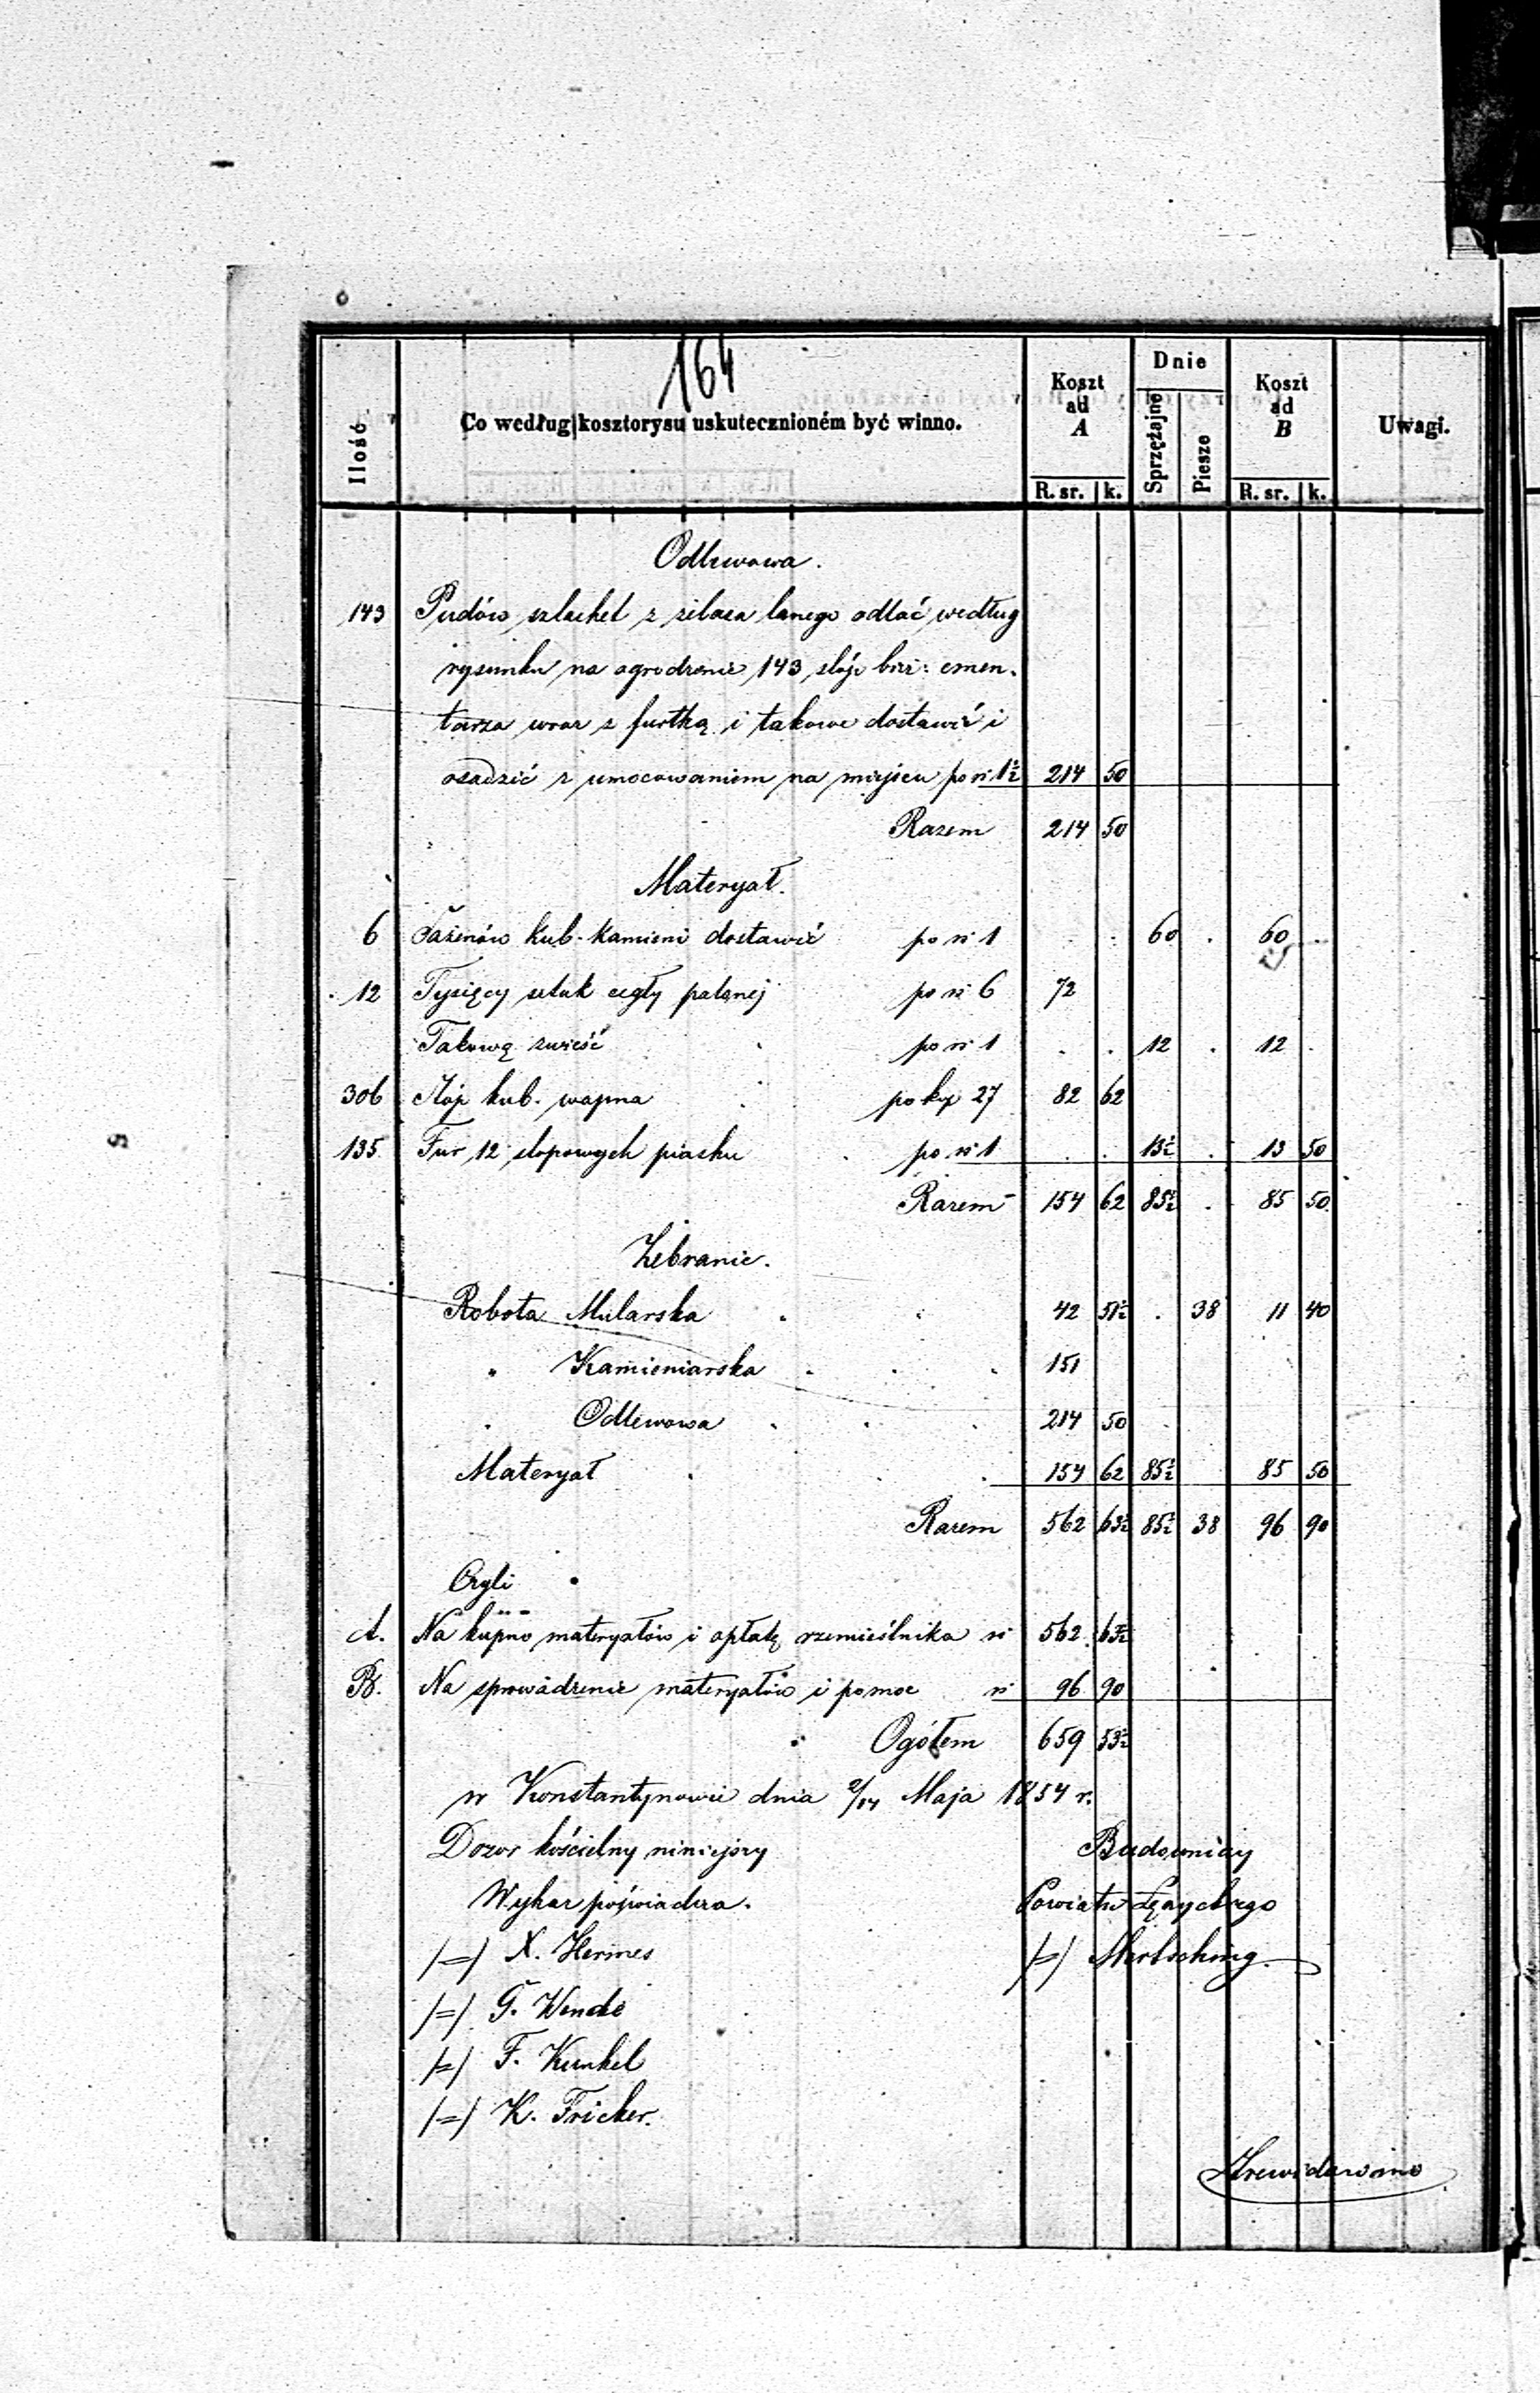 164
Ilość | Co według kosztorysu uskutecznioném być winno. | Koszt ad A R. sr. k. | Dnie Sprzężajne Piesze | Koszt ad B R. sr. k. | Uwagi.
Odlewowa.
143 Pudów sztachet z żelaza lanego odlać według
rysunku na ogrodzenie 143 stóp bież: cmen-
tarza wraz z furtką i takowe dostawić i
osadzić z umocowaniem na miejscu po rs 1½ 214 50
Razem 214 50
Materyał.
6 Sażenów kub. kamieni dostawić po rs 1 . . 60 . 60 .
12 Tysięcy sztuk cegły palonej po rs 6 72
Takową zwieść po rs 1 . . 12 . 12 .
306 Stóp kub. wapna po kop 27 82 62
135 Fur 12 stopowych piasku po rs 1 . . 13½ . 13 50
Razem 154 62 85½ . 85 50
Zebranie.
Robota Mularska 42 51½ . 38 11 40
" Kamieniarska 151
" Odlewowa 214 50
Materyał 154 62 85½ 85 50
Razem 562 63½ 85½ 38 96 90
Czyli
A. Na kupno materyałów i opłatę rzemieślnika rs 562 63½
B. Na sprowadzenie materyałów i pomoc rs 96 90
Ogółem 659 53½
w Konstantynowie dnia 2/14 Maja 1854 r.
Dozor kościelny niniejszy Budowniczy
Wykaz poświadcza. Powiatu Łęczyckiego
/=/ X. Hermes /=/ Mertsching
/=/ G. Wende
/=/ F. Kunkel
/=/ K. Fricker.
Zrewidowano
5